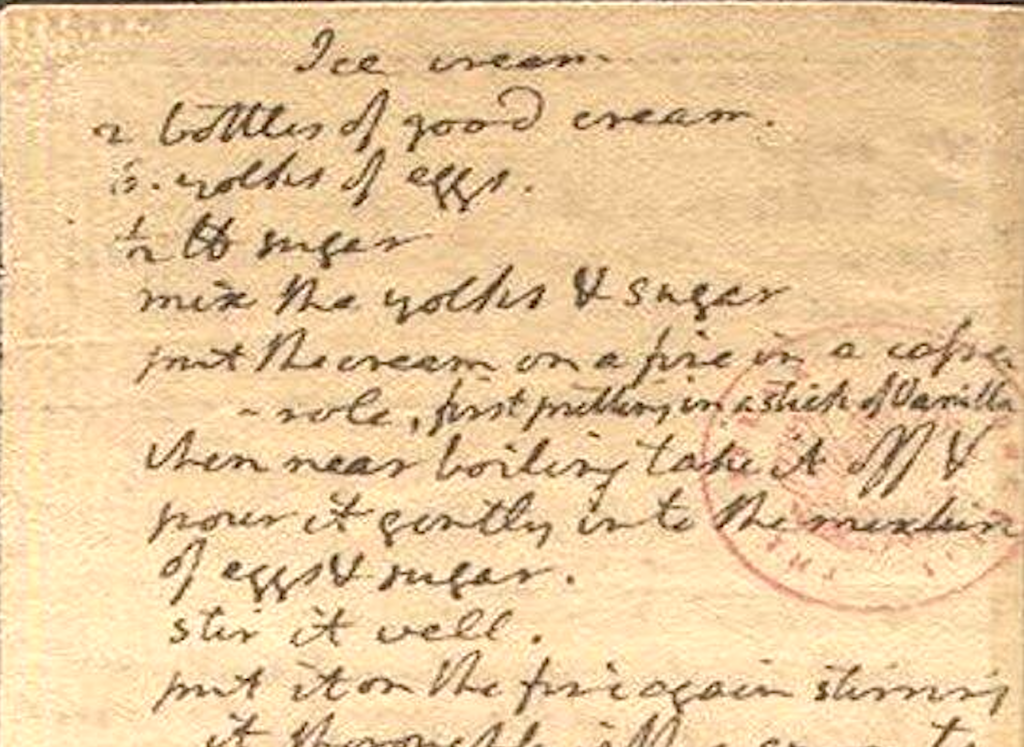 Ice cream.
2 bottles of good cream.
6. yolks of eggs.
1/2 ℔ sugar
mix the yolks & sugar
put the cream on a fire in a casse
- role, first putting in a stick of Vanilla
when near boiling take it off &
pour it gently into the mixture
of eggs & sugar.
stir it well.
put it on the fire again stirring
it thoroughly with a